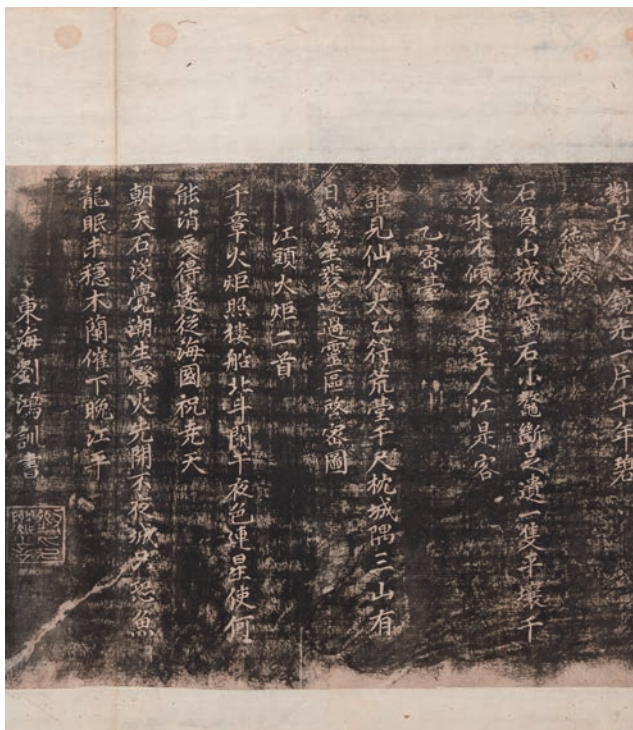 對古人心鏡光一片千年碧
德巖
石負山城江齒石小鰲斷足遺一隻平壤千
秋永不傾石是主人江是客
乙密臺
誰見仙人太乙符荒臺千尺枕城隅三山有
日鸞笙發更過靈區改密圖
江頭火炬二首
千章火炬照樓船北斗闌干夜色連星使何
能消受得遠從海國祝堯天
朝天石沒覺潮生燈火先開不夜城少恐魚
龍眠未穩木蘭催下晚江平
東海劉鴻訓書